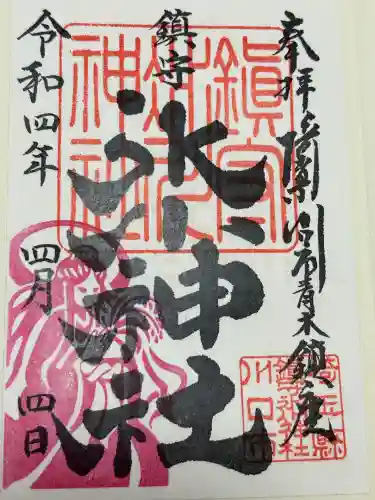 奉拝 武蔵国川口市青木鎮座
鎮守
氷川神社
令和四年 四月 四日
鎮守氷川神社
埼玉県
鎮守氷川神社
川口市